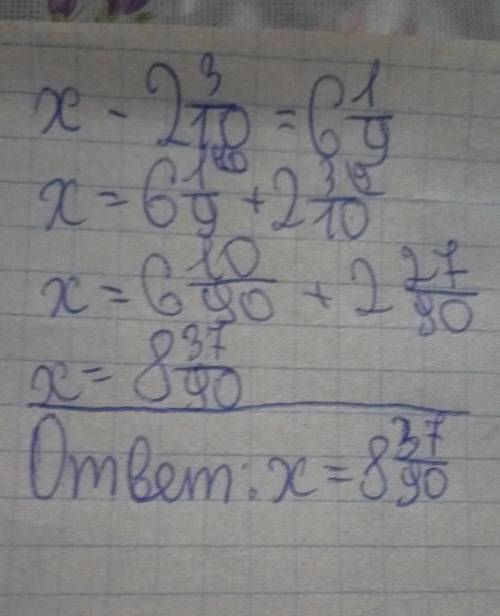 x - 2 3/10 = 6 1/9
x = 6 1/9 + 2 3/10
x = 6 10/90 + 2 27/90
x = 8 37/90
Ответ: x = 8 37/90